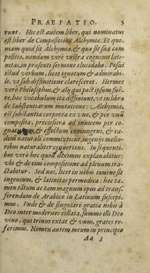 PRAEFATIO. 5
runt. Hic est autem liber, qui nominatur
est liber de Compositione Alchymiæ. Et quoniam
quid sit Alchymia, & quæ sit sua compositio,
nondum vere vestra cognovit latinitas,
in præsenti sermone elucidabo. Posui
istud verbum, licet ignotum & admirabile,
ut sub definitione clarescat. Hermes
verò Philosophus, & alij qui post ipsum fuerunt,
hoc vocabulum ita definiunt, ut in libro
de substantiarum mutatione, Alchymia,
est substantia corporea ex uno, & per unum
composita, preciosiora ad invicem per cognationem
& effectum coniungens, & eadem
naturali commixtione, ingeniis melioribus
naturaliter convertens. In sequentibus
verò hoc quod diximus explanabitur,
ubi & de eius compositione ad plenum tractabitur.
Sed nos, licet in nobis iuvene sit
ingenium, & latinitas permodica: hoc tamen
tantum ac tam magnum opus ad transferendum
de Arabico in Latinum suscepimus.
Unde & de singulari gratia nobis à
Deo inter modernos collata, summo illi Deo
vivo, qui trinus extat & unus, grates referimus.
Nomen autem meum in principio
Aa 3